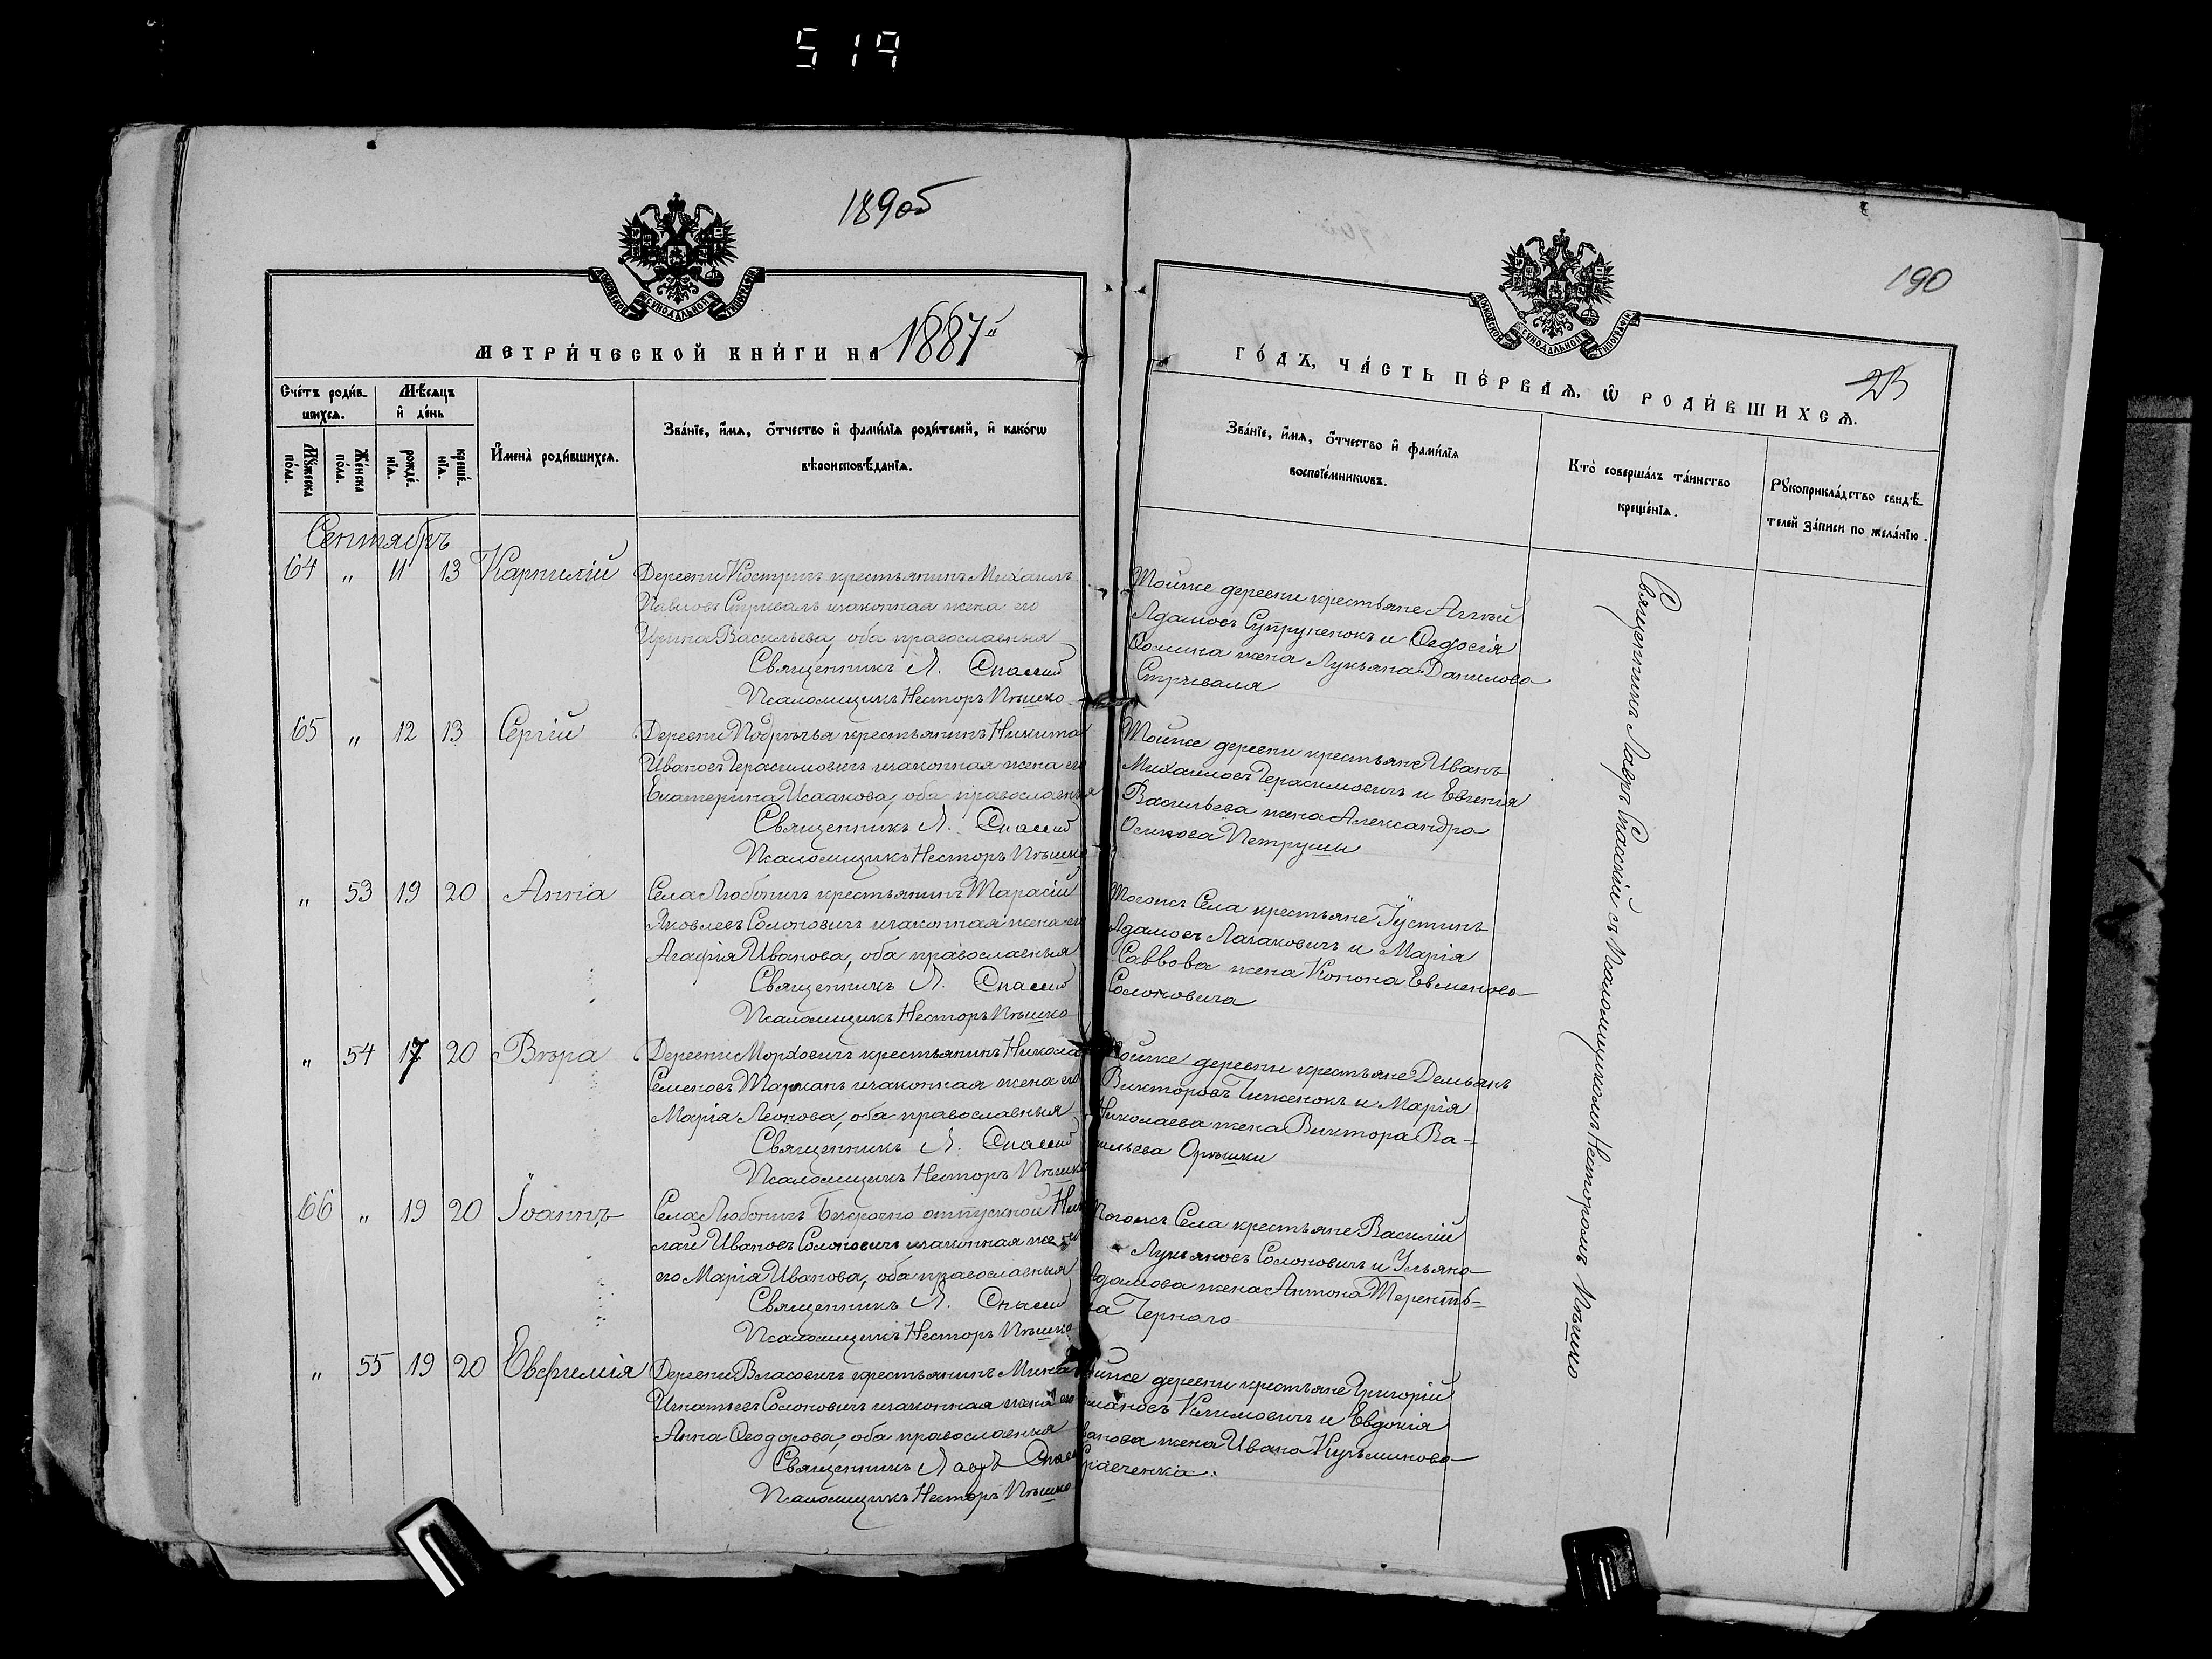 519
189об
МОСКОВСКОЙ СѴНОДАЛЬНОЙ ТИПОГРАФІИ
МЕТРИ́ЧЕСКОЙ КНИ́ГИ НА 1887й
Сче́тъ роди́в-
шихся.
Мѣ́сяцъ
и҆ де́нь
Мꙋ́жеска
по́ла.
Же́нска
по́ла.
рожде́-
нїѧ.
креще́-
нїѧ.
И҆мена̀ роди́вшихсѧ.
Зва́нїе, и҆́мѧ, ѻ҆́тчество и҆ фами́лїѧ роди́телей, и҆ како́гѡ
вѣроисповѣ́данїѧ.
Сентябрь
64 " 11 13 Карнилій Деревни Кострич крестьянинъ Михаилъ
Павловъ Стриваль изаконная жена его
Ирина Васильева, оба православныя
Священникъ Л. Спасскій
Псаломщикъ Несторъ Пѣшко
65 " 12 13 Сергій Деревни Подрѣчья крестьянинъ Никита
Ивановъ Герасимовичъ изаконная жена его
Екатерина Исаакова, оба православныя
Священникъ Л. Спасскій
Псаломщикъ Несторъ Пѣшко
" 53 19 20 Анна Села Любоничъ крестьянинъ Тарасій
Яковлевъ Солоновичъ изаконная жена его
Агафія Иванова, оба православныя
Священникъ Л. Спасскій
Псаломщикъ Несторъ Пѣшко
" 54 17 20 Вѣра Деревни Морховичъ крестьянинъ Никола
Семеновъ изаконная жена его
Марія Леонова, оба православныя
Священникъ Л. Спасскій
Псаломщикъ Несторъ Пѣшко
66 " 19 20 Іоаннъ Села Любоничъ Безсрочно отпускной Ник
лай Ивановъ Солоновичъ изаконная жена
его Марія Иванова, оба православныя
Священникъ Л. Спасскій
Псаломщикъ Несторъ Пѣшко
" 55 19 20 Евфимія Деревни Власовичъ крестьянинъ Миха
Игнатьевъ Солоновичъ изаконная жена его
Анна Ѳеодорова, оба православныя
Священникъ Лавръ Спасскій
Псаломщикъ Несторъ Пѣшко
190
МОСКОВСКОЙ СѴНОДАЛЬНОЙ ТИПОГРАФІИ
ГО́ДЪ, ЧА́СТЬ ПЕ́РВАѦ, Ѡ҆ РОДИ́ВШИХСѦ.
Зва́нїе, и҆́мѧ, ѻ҆́тчество и҆ фами́лїѧ
воспрїе́мникѡвъ.
Кто̀ соверша́лъ та́инство
креще́нїѧ.
Рꙋкоприкла́дство свидѣ́-
телей за́писи по жела́нїю.
Тойже деревни крестьяне
Адамовъ Супруненокъ и Ѳедосія
Ѳомина жена Лукьяна Данилова
Стриваля
Тойже деревни крестьяне Иванъ
Михаиловъ Герасимовичъ и Евгенія
Васильева жена Александра
Осипова Петруши
Тогожъ Села крестьяне Іустинъ
Адамовъ Лагаковичъ и Марія
Саввова жена Конона Евменова
Солоновича
Тойже деревни крестьяне Демьянъ
Викторовъ Чиженокъ и Марія
Николаева жена Виктора Ва-
сильева Орѣшки
Тогожъ Села крестьяне Василій
Лукьяновъ Солоновичъ и Ульяна
Адамова жена Антона Теренть-
ва Чернаго
ойже деревни крестьяне Григорій
омановъ Климовичъ и Евдокія
ванова жена Ивана Кузьминова
равченка.
Священникъ Лавръ Спасскій съ Псаломщикомъ Несторомъ Пѣшко